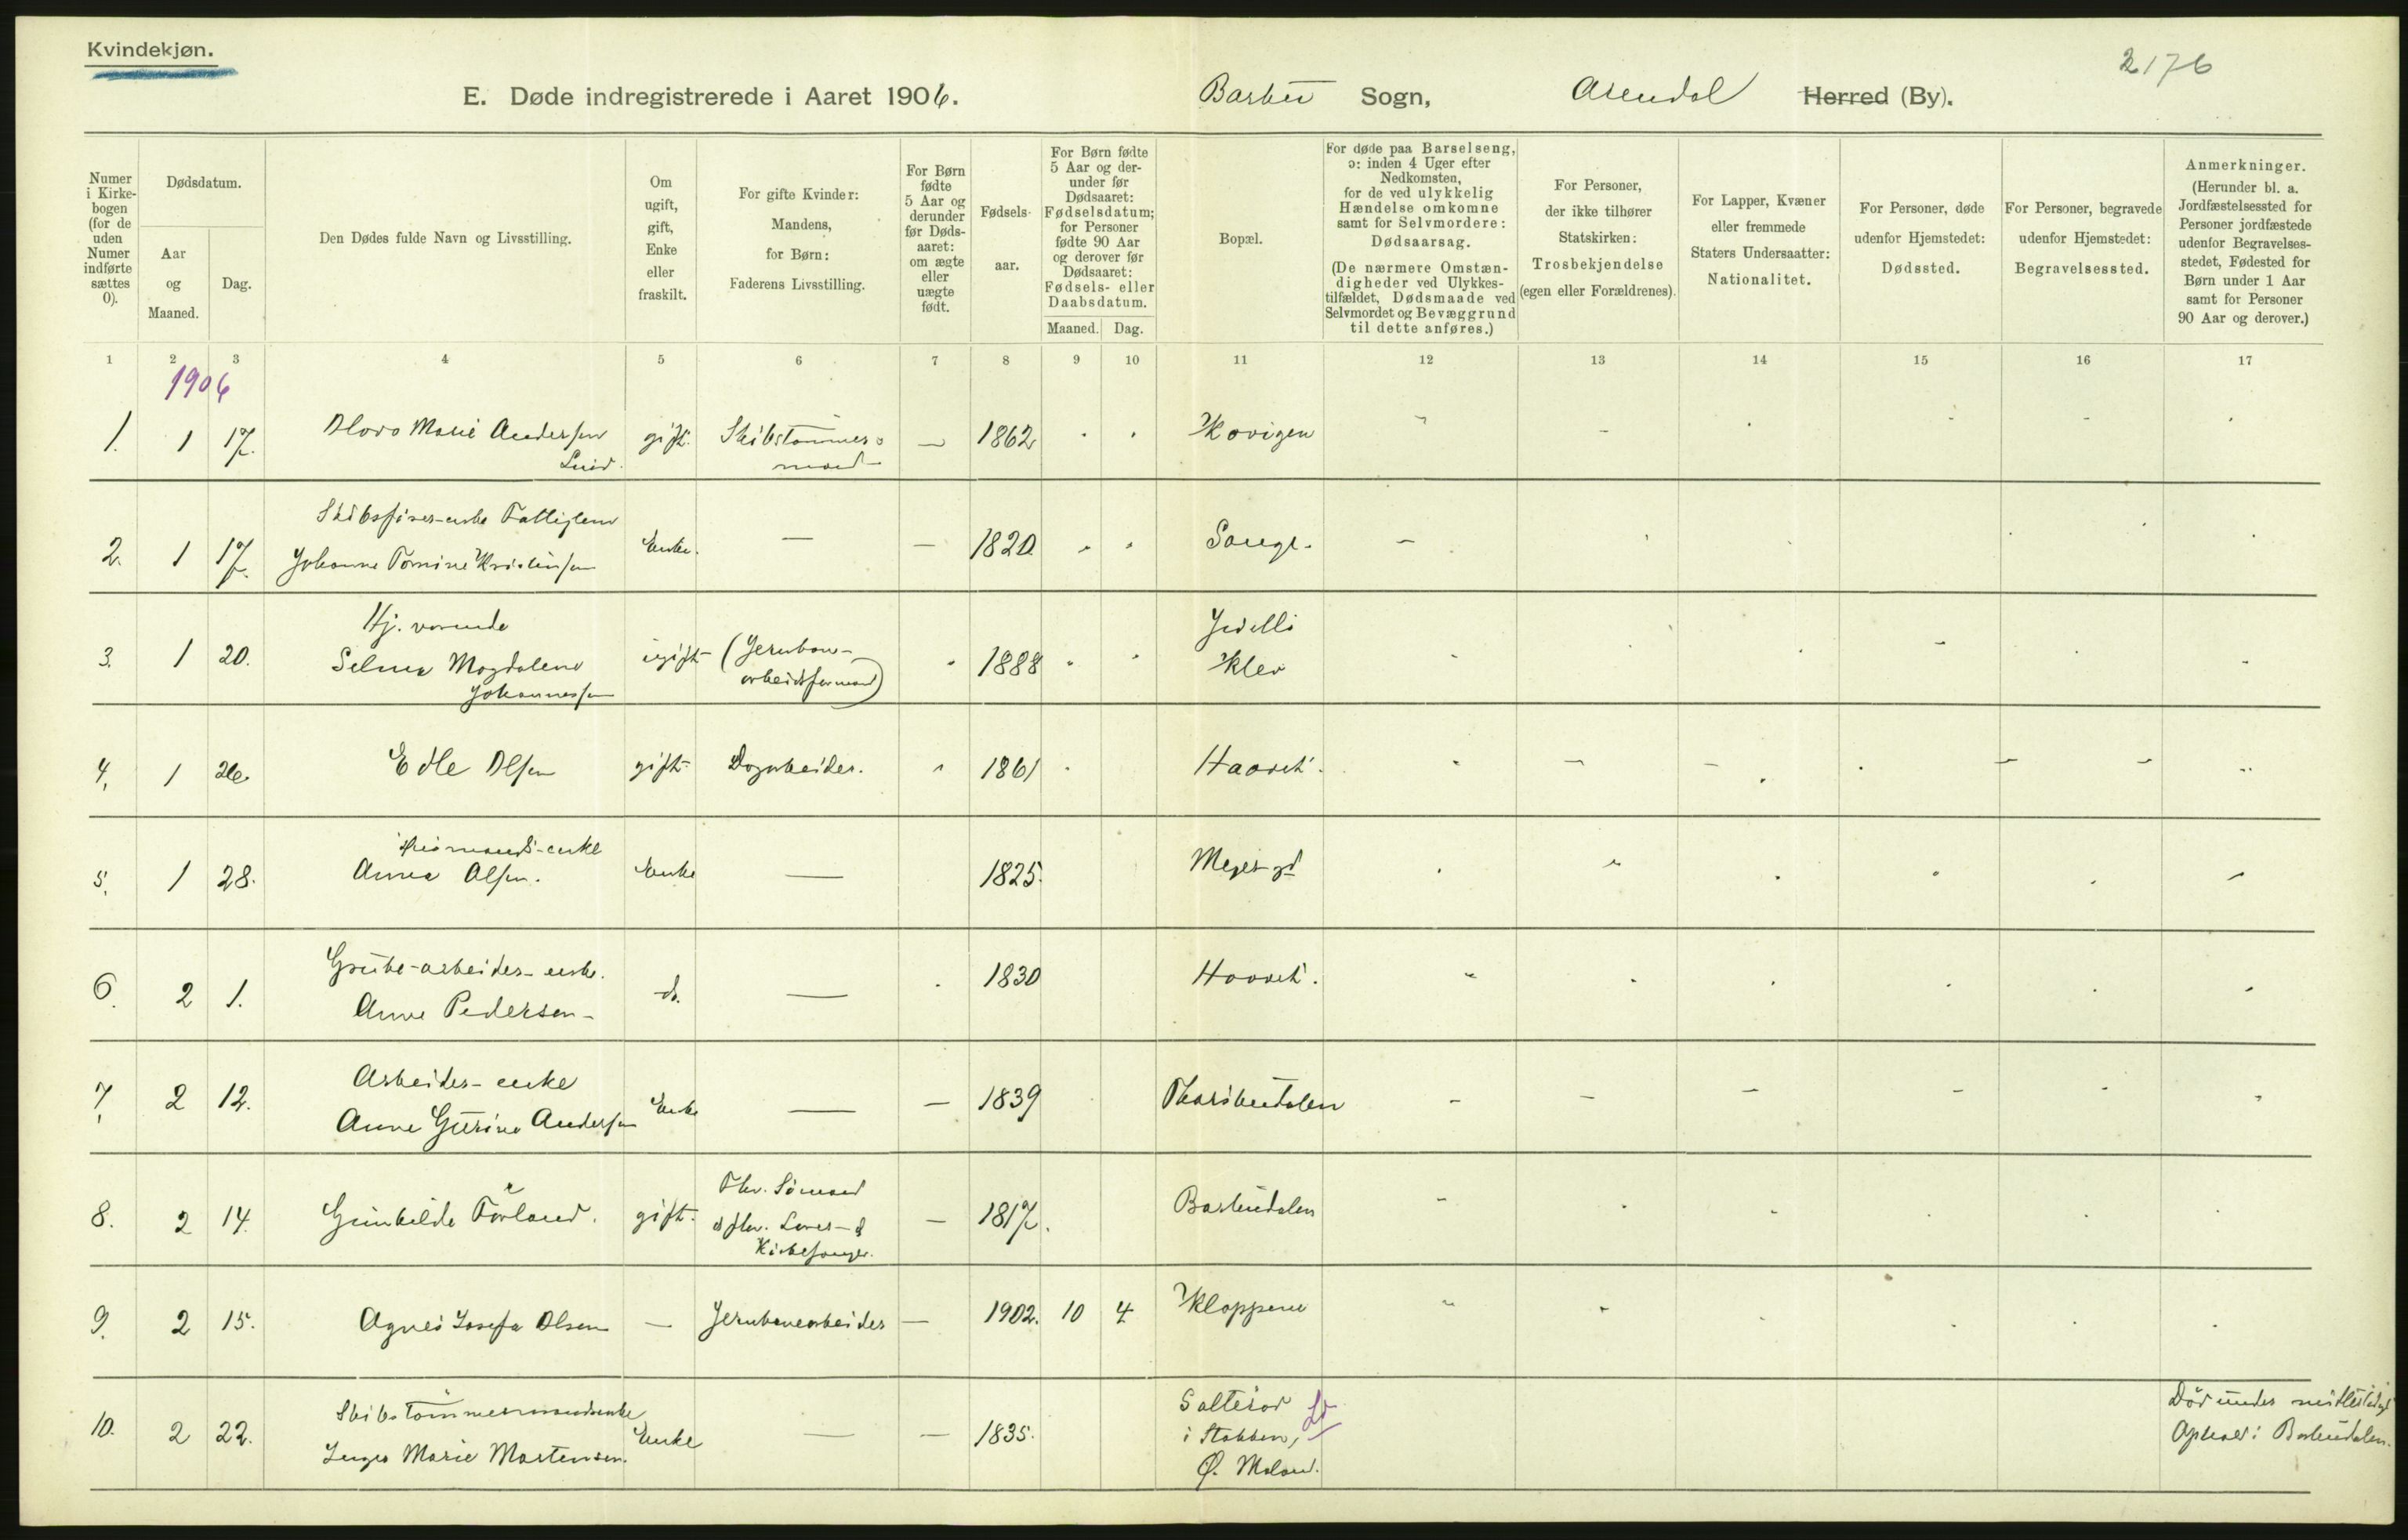 Kvindekjøn.
2176
E. Døde indregistrerede i Aaret 1906. Barbu Sogn, Arendal Herred (By).
Numer i Kirkebogen (for de uden Numer indførte sættes 0).
Dødsdatum.
Aar og Maaned.
Dag.
Den Dødes fulde Navn og Livsstilling.
Om ugift, gift, Enke eller fraskilt.
For gifte Kvinder: Mandens, for Børn: Faderens Livsstilling.
For Børn fødte 5 Aar og derunder før Dødsaaret: om ægte eller uægte født.
Fødselsaar.
For Børn fødte 5 Aar og derunder før Dødsaaret: Fødselsdatum; for Personer fødte 90 Aar og derover før Dødsaaret: Fødsels- eller Daabsdatum.
Maaned. Dag.
Bopæl.
For døde paa Barselseng, ɔ: inden 4 Uger efter Nedkomsten, for de ved ulykkelig Hændelse omkomne samt for Selvmordere: Dødsaarsag.
(De nærmere Omstændigheder ved Ulykkestilfældet, Dødsmaade ved Selvmordet og Bevæggrund til dette anføres.)
For Personer, der ikke tilhører Statskirken: Trosbekjendelse (egen eller Forældrenes).
For Lapper, Kvæner eller fremmede Staters Undersaatter: Nationalitet.
For Personer, døde udenfor Hjemstedet: Dødssted.
For Personer, begravede udenfor Hjemstedet: Begravelsessted.
Anmerkninger.
(Herunder bl. a. Jordfæstelsessted for Personer jordfæstede udenfor Begravelsesstedet, Fødested for Børn under 1 Aar samt for Personer 90 Aar og derover.)
1 2 3 4 5 6 7 8 9 10 11 12 13 14 15 16 17
1906
1. 1 17. Marie Andersen gift. Skibstømmermand — 1862
2. 1 17. Skibsfører-enke
Johanne Tomine Kristensen Enke. — — 1820 Songe.
3. 1 20. Hj. værende
Selma Magdalene
Johannessen ugift (Jernbanearbeidsformand) 1888 Klev
4. 1 26. Edle Olsen gift Dagarbeider. 1861
5. 1 28. enke
Anna Olsen. Enke — 1825. Meyer-gd
6. 2 1. Grube-arbeider-enke.
Anne Pedersen do. — 1830
7. 2 12. Arbeider-enke
Anne Gurine Andersen Enke — — 1839 Tharibudalen
8. 2 14. Gunhilde Førland. gift. Fhv. Sømand
& fhv. Lærer &
Kirkesanger. — 1817. Barbudalen
9. 2 15. Agnes Josefa Olsen — Jernbanearbeider — 1902. 10 4 Kloppene
10. 2 22. Skibstømmermandsenke
Inger Marie Martensen. Enke — — 1835. Salterød
i Stokken,
Ø. Moland.
Død under midlertidigt
Ophold i Barbudalen.